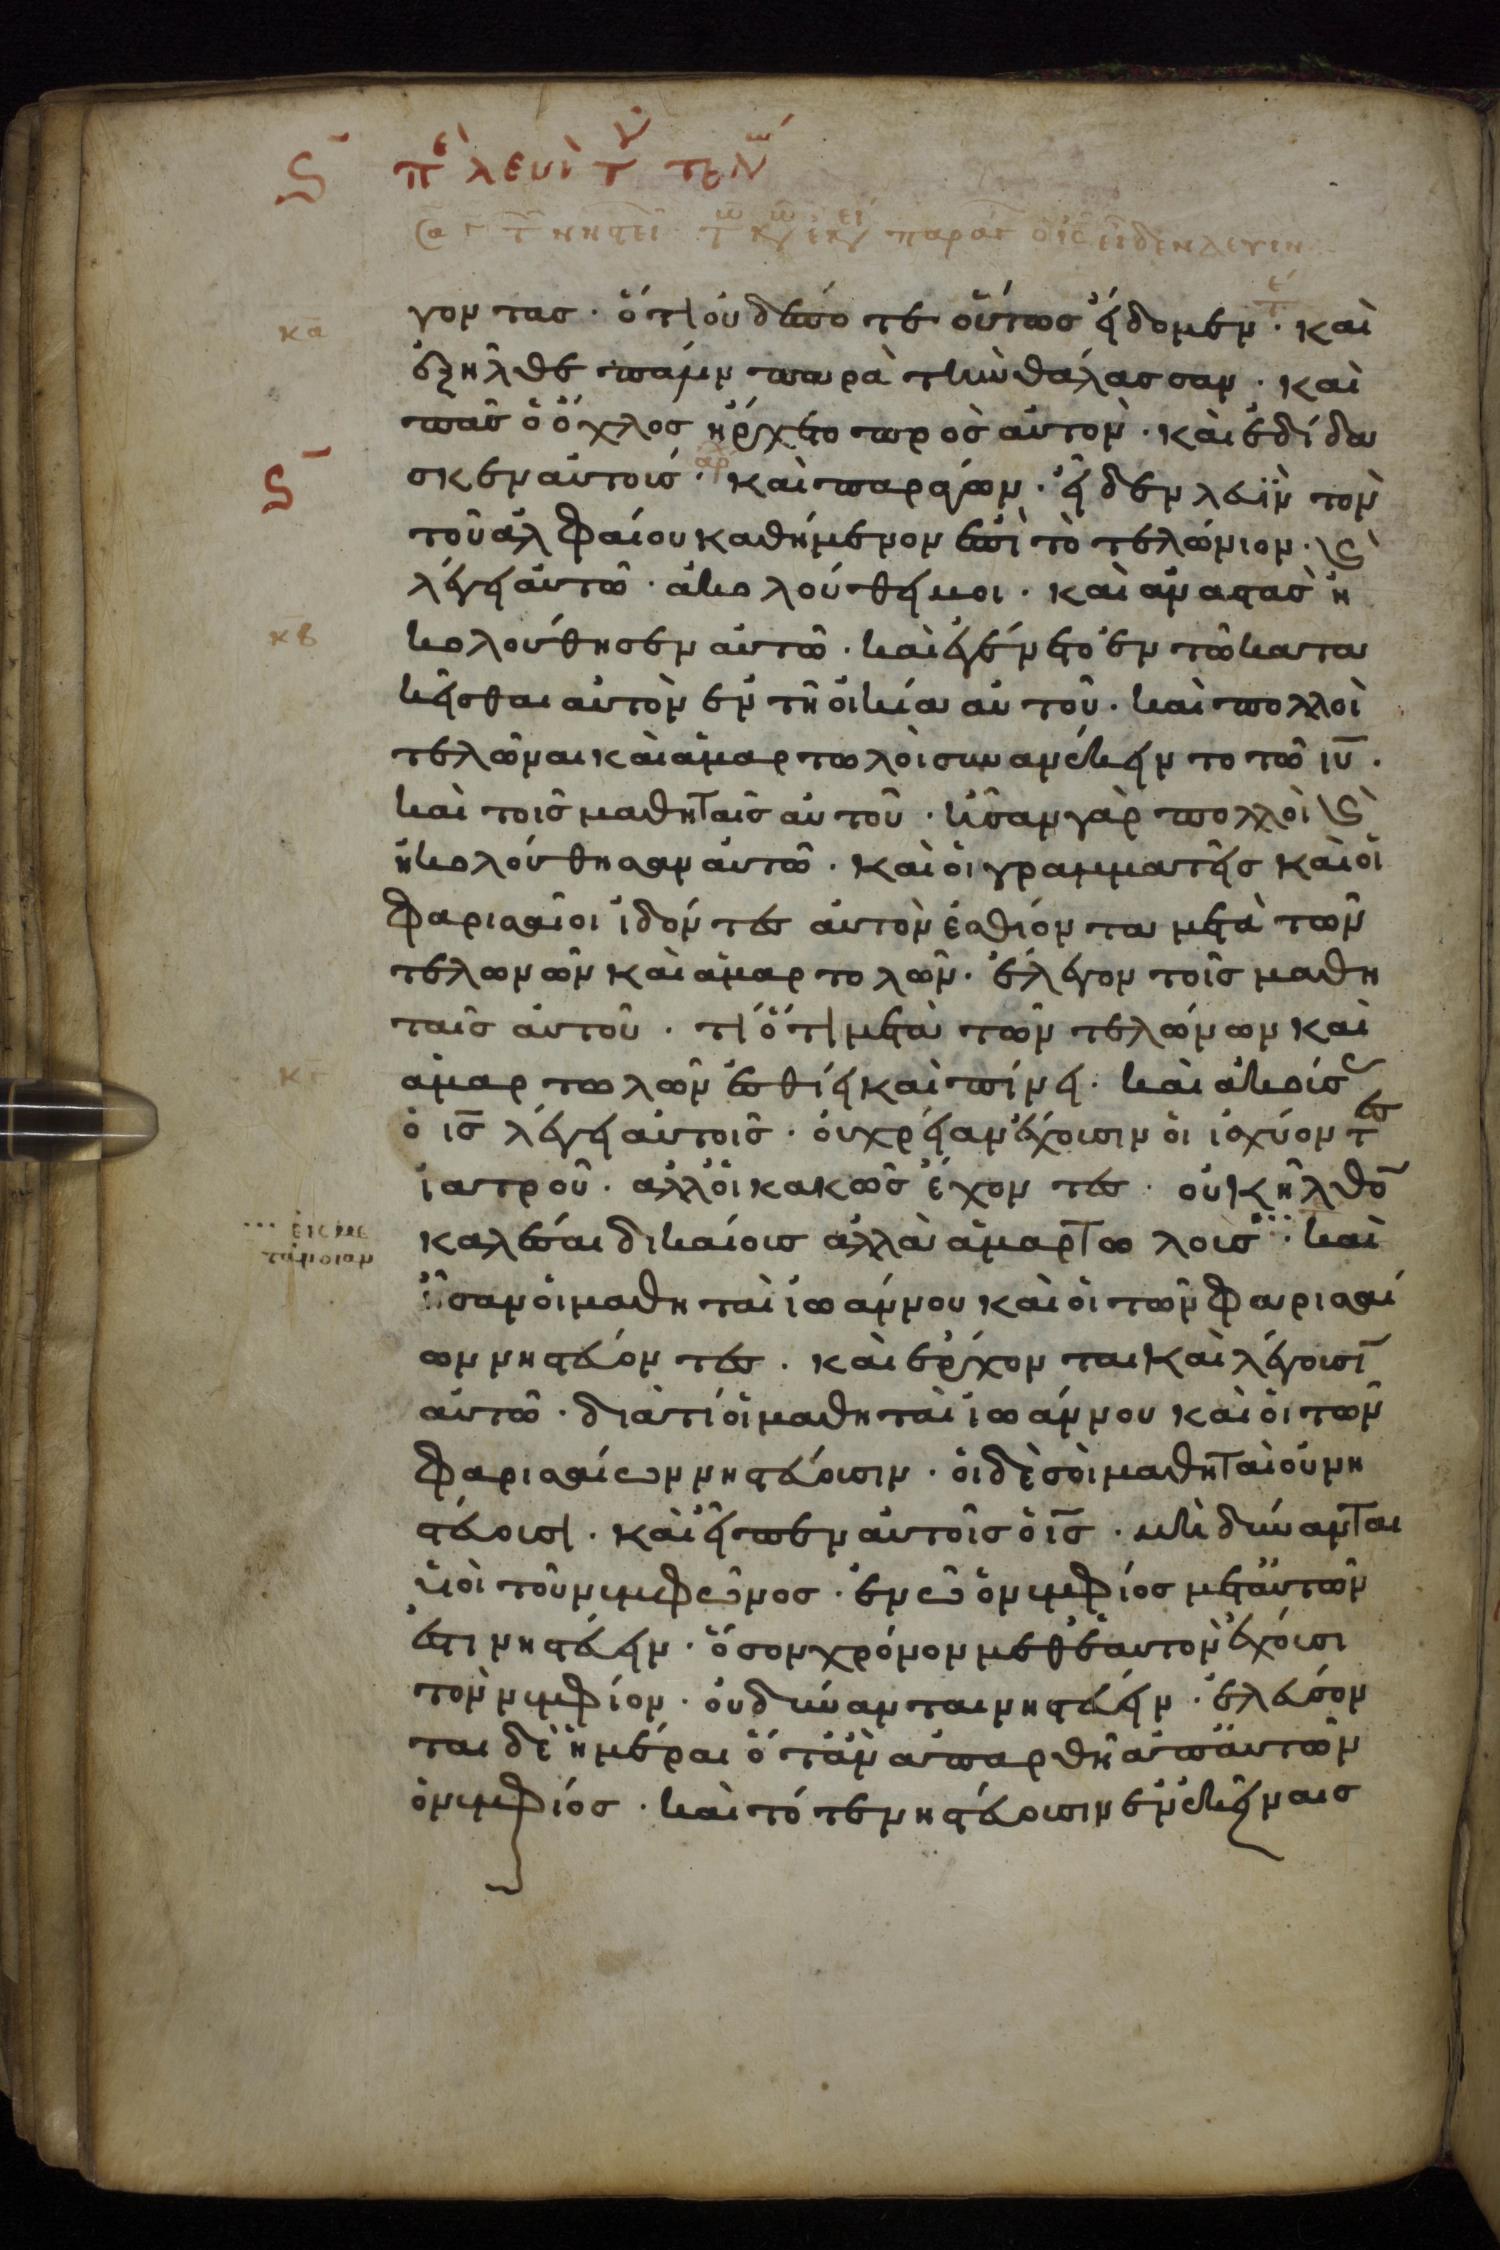 ϛ̅ πε λευὶ τ τελων
κα γοντας · ὅτι οὐδέποτε οὕτως εἴδομεν · καὶ
ἐξῆλθε πάλιν παρὰ τὴν θάλασσαν · καὶ
πᾶς ὁ ὄχλος ἤρχετο πρὸς αὐτὸν · καὶ ἐδίδα
ϛ̅ σκεν αὐτοὺς · ἀρχ καὶ παράγων · εἶδεν λευὶν τὸν
τοῦ ἀλφαίου καθήμενον ἐπὶ τὸ τελώνιον · ϗ
λέγει αὐτῶ · ἀκολούθει μοι · καὶ ἀναστὰς ἠ
κβ κολούθησεν αὐτῶ · καὶ ἐγένετο ἐν τῶ κατα
κεῖσθαι αὐτὸν ἐν τῆ οἰκία αὐτοῦ · καὶ πολλοὶ
τελῶναι καὶ ἁμαρτωλοὶ συνανέκειντο τῶ ιυ̅ ·
καὶ τοῖς μαθηταῖς αὐτοῦ · ἦσαν γὰρ πολλοὶ ϗ
ἠκολούθησαν αὐτῶ · καὶ οἱ γραμματεῖς καὶ οἱ
φαρισαῖοι ἰδόντες αὐτὸν ἐσθίοντα μετὰ τῶν
τελωνῶν καὶ ἁμαρτολῶν · ἔλεγον τοῖς μαθη
ταῖς αὐτοῦ · τί ὅτι μετὰ τῶν τελώνων καὶ
κγ ἁμαρτωλῶν ἐσθίει καὶ πίνει · καὶ ἀκούσ
ὁ ις̅ λέγει αὐτοῖς · οὐ χρείαν ἔχουσιν οἱ ἰσχύοντες
ἰατροῦ · ἀλλ' οἱ κακῶς ἔχοντες · οὐκ ἦλθο̅
καλέσαι δικαίους ἀλλὰ ἁμαρτωλοὺς ⸫ · καὶ
⸫ εἰς με
τάνοιαν
ἦσαν οἱ μαθηταὶ ἰωάννου καὶ οἱ τῶν φαρισαί
ων νηστεύοντες · καὶ ἔρχονται καὶ λέγουσι̅
αὐτῶ · διὰ τί οἱ μαθηταὶ ἰωάννου καὶ οἱ τῶν
φαρισαίων νηστεύουσιν · οἱ δὲ σοὶ μαθηταὶ οὐ νη
στεύουσι · καὶ εἶπεν αὐτοῖς ὁ ις̅ · μὴ δύνανται
υἱοὶ τοῦ νυμφῶνος · ἐν ῶ ὁ νυμφίος μετ' αὐτῶν
ἐστι νηστεύειν · ὅσον χρόνον μεθ' ἑαυτὸν ἔχουσι
τὸν νυμφίον · οὐ δύνανται νηστεύειν · ἐλεύσον
ται δὲ ἡμέραι ὅταν ἀπαρθῆ ἀπ' αὐτῶν
ὁ νυμφίος · καὶ τότε νηστεύουσιν ἐν ἐκείναις